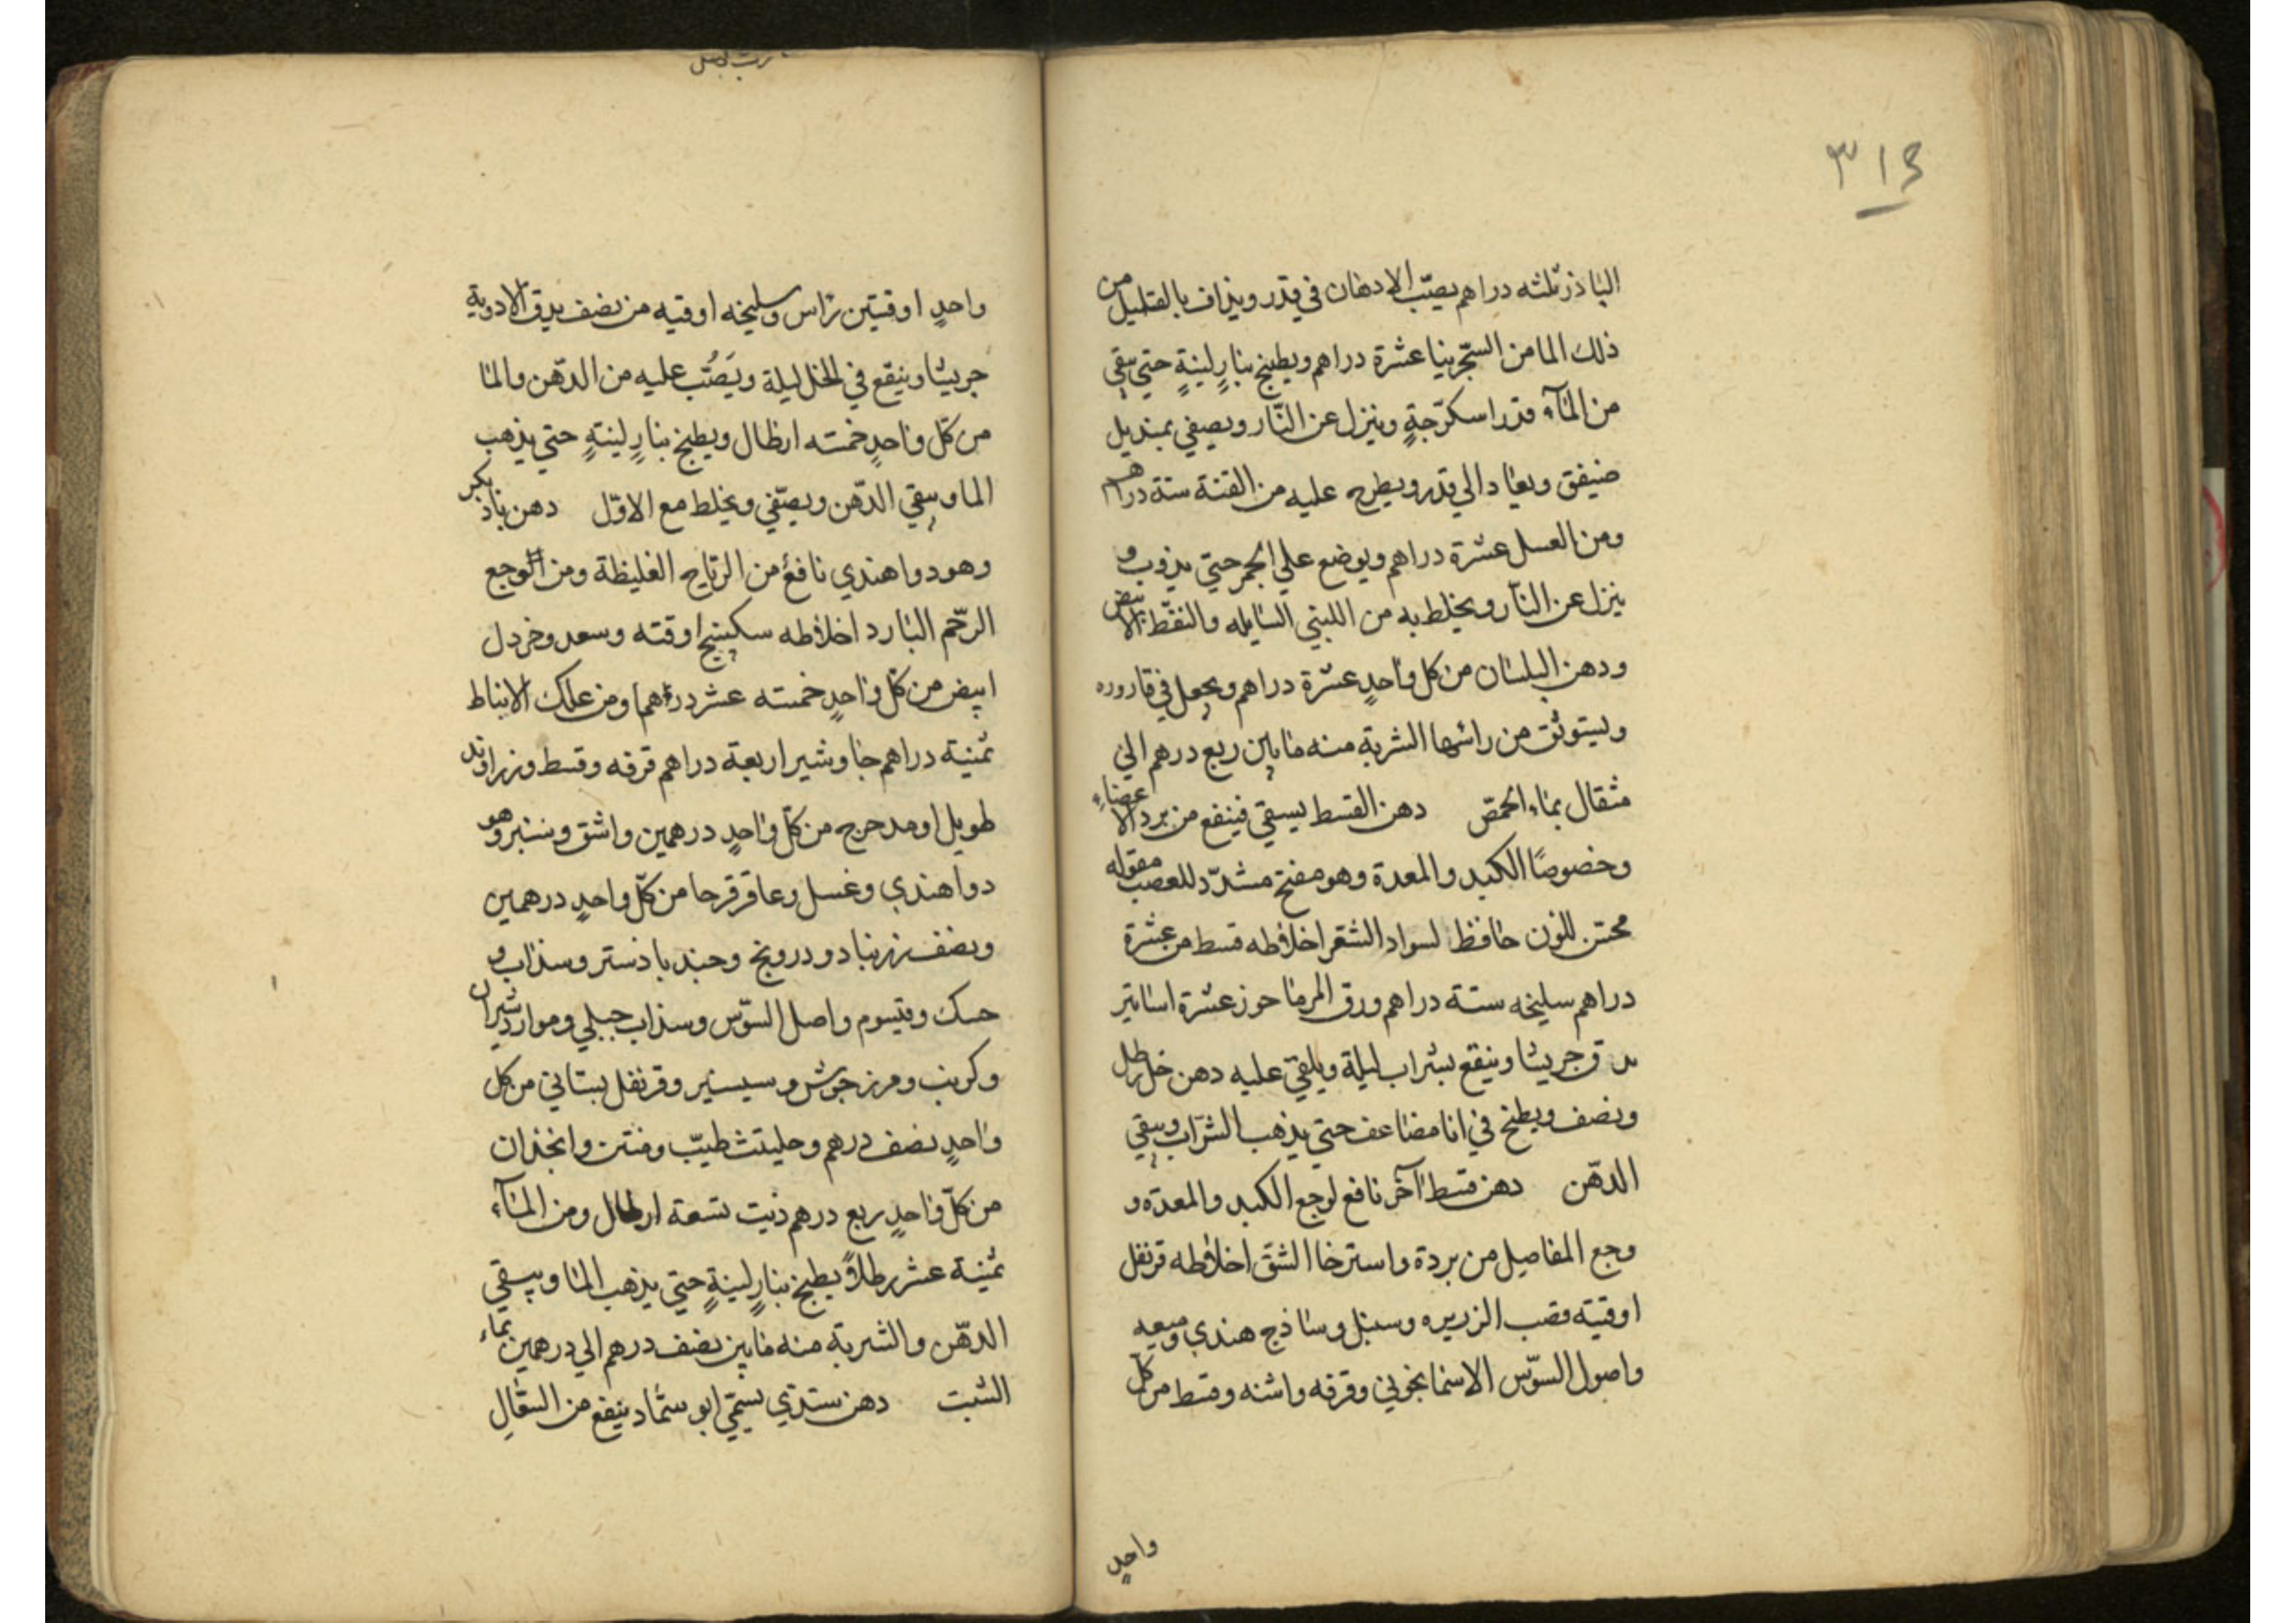 ٣١٤
الباذ ثلثه دراهم يصبّ الادهان في قدر ويذاف بالقليل من
ذلك الما من السجّرينا عشرة دراهم ويطبخ بنارٍ لينةٍ حتي يبقي
من المآء قدر اسكرّجةٍ وينزل عن النّار ويصفي بمنديل
ضيفق ويعاد الي قدر ويطرح عليه من القنة ستة دراهم
ومن العسل عشرة دراهم ويوضع علي الجمر حتي يذوب و
ينزل عن النآر ويخلط به من اللبني السايله والنفّط الابيض
ودهن البلسان من كل واحدٍ عشرة دراهم ويجعل في قاروره
ويستوثق من راسها الشربة منه مابين ربع درهم الي
مثقال بماء الحمّص دهن القسط يسقي فينفع من برد الاعضاء
وخصوصًا الكبد والمعدة وهو مفتح مشدّد للعصب مقوله
محسّن للون حافظ لسواد الشعر اخلاطه قسط مر عشرة
دراهم سليخه ستة دراهم ورق المرماحوز عشرة اساتير
يدق جريشا وينقع بشراب ليلة ويلقي عليه دهن خل رطل
ونصف ويطبخ في انا مضاعف حتي يذهب الشرّاب ويبقي
الدهّن دهن قسط آخر نافع لوجع الكبد والمعدّه و
وجع المفاصيل من بردة واسترخا الشقّ اخلاطه قرنفل
اوقيته قصب الزريره وسنبل وساذج هندي وميعه
واصول السوّس الاسمانجوني وقرفه واشنه وقسط من كلّ
واحدٍ
واحدٍ اوقيتين راس وسليخه اوقيه من نصف يدق الادوية
جريشا وينقع في الخل ليلة ويَصُبّ عليه من الدهّن والما
من كلّ واحدٍ خمسته ارطال ويطبخ بنارٍ لينتهٍ حتي يذهب
الما ويبقي الدهّن ويصفّي ويخلط مع الاوّل دهن باذ بكر
وهو دوا هندي نافعٌ من الرّياح الغليظة ومن الوجع
الرحّم البارد اخلاطه سكبينج اوقته وسعد وخردل
ابيض من كل واحدٍ خمسته عشر درهما ومن علك الانباط
ثمنية دراهم جاوشير اربعة دراهم قرفه وقسط وزراوند
طويل او مدحرج من كلّ واحدٍ درهمين واشق وبنبر وهو
دوا هندي وغسل وعاقرقرحا من كلّ واحدٍ درهمين
ونصف زرنباد ودرونج وجندبادستر وسذاب و
حسك وقيسوم واصل السوّس وسذاب جبلي وموارد شيران
وكرنب ومرزجوش وسيسنبر وقرنفل بستاني من كل
واحدٍ نصف درهم وحليتث طيبّ ومنتن وانجذان
من كلّ واحدٍ ربع درهم زيت تسعة ارطال ومن المآء
ثمنية عشر رطلاً يطبخ بنارٍ لينةٍ حتي يذهب الما ويبقي
الدهّن والشربة منه مابين نصف درهم الي درهمين بماء
الشبت دهن ستذي يسمّي ابو سمّاد ينفع من السعّالِ